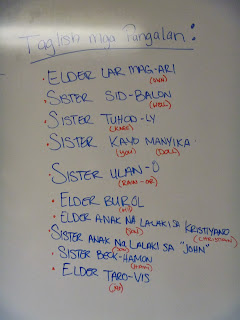 Taglish mga Pangalan:
• ELDER LAR MAG-ARI
(OWN)
• SISTER SID-BALON
(WELL)
• SISTER TUHOD-LY
(KNEE)
• SISTER KAYO MANYIKA
(YOU) (DOLL)
SISTER ULAN-O
(RAIN-OR)
• ELDER BUROL
• ELDER ANAK NA LALAKI SA KRISTIYANO
(SON) (CHRISTIAN)
SISTER ANAK NA LALAKI SA "JOHN"
(SON)
• SISTER BECK-HAMON
• ELDER TARO-VIS